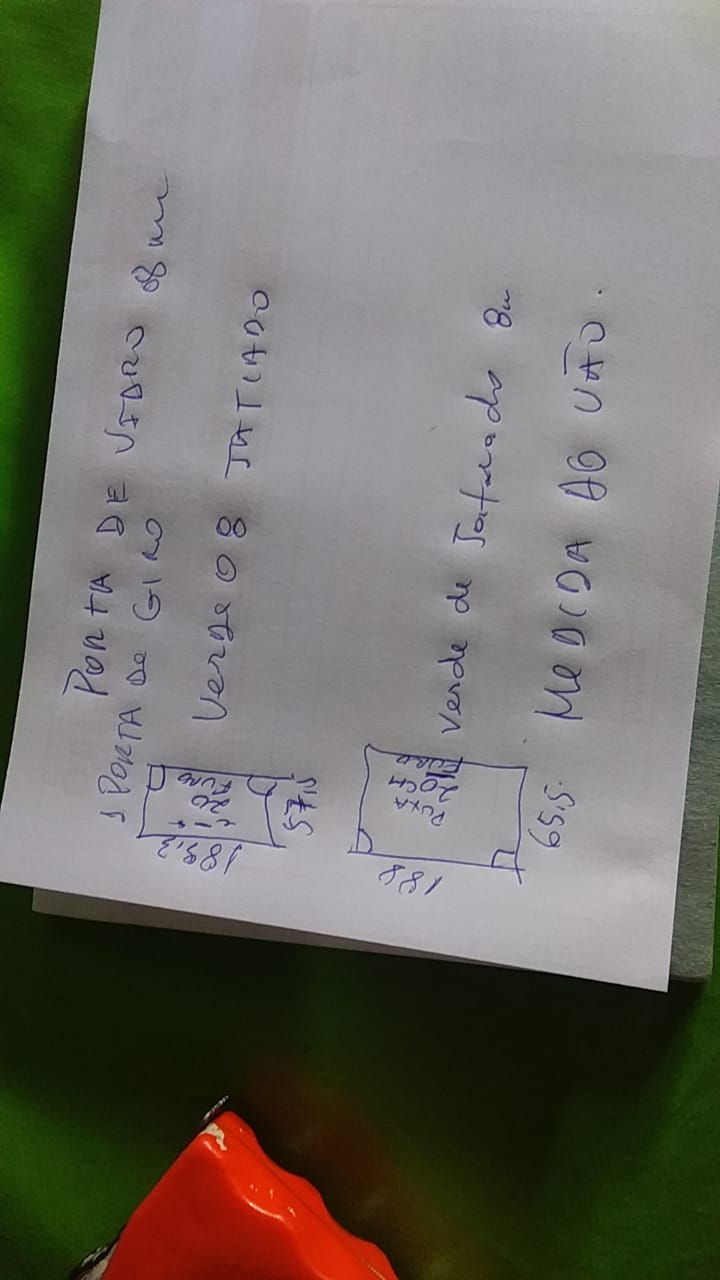 PORTA DE VIDRO 8 mm
1 PORTA DE GIRO
Verde 08 JATIADO
188,2
20
FURO
57,5
Verde de Jateado 8m
188
PUXA
20 CM
FURO
65,5.
MEDIDA DO VÃO.